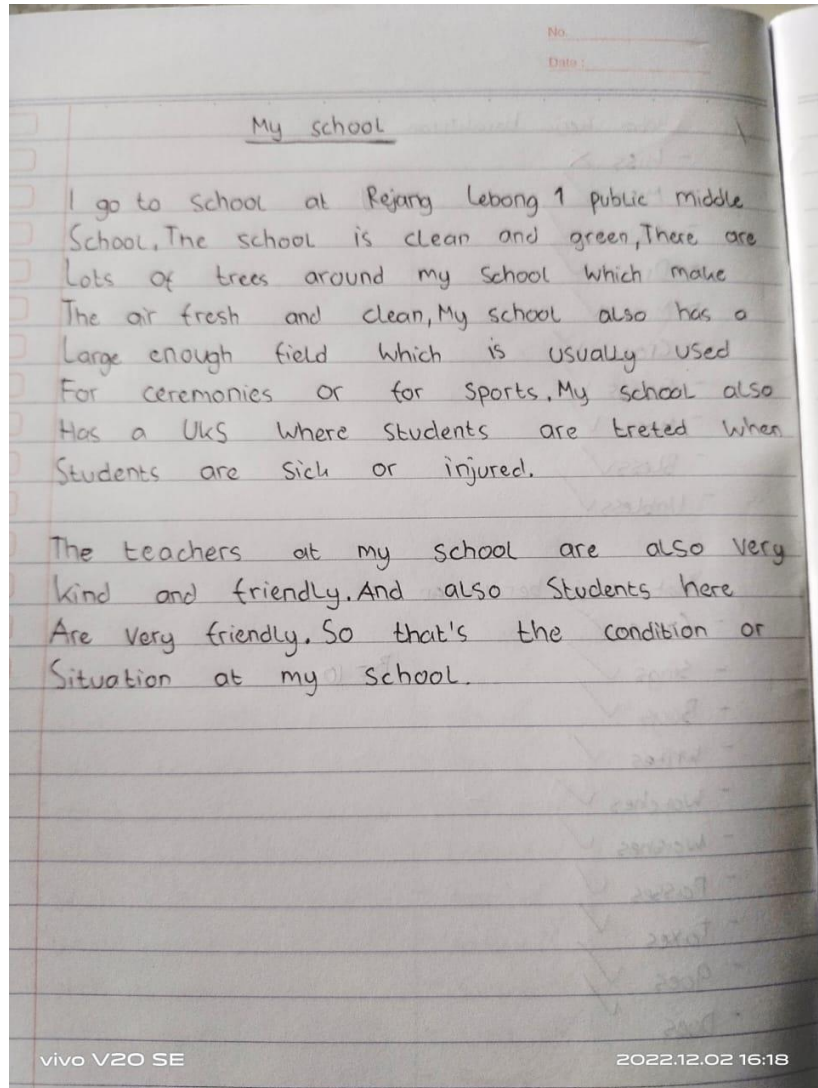 No.
Date :
My school
I go to school at Rejang Lebong 1 public middle
School. The school is clean and green, There are
Lots of trees around my school which make
The air fresh and clean, My school also has a
Large enough field which is usually used
For ceremonies or for sports. My school also
Has a UKS where students are treted when
Students are sick or injured.
The teachers at my school are also very
kind and friendly. And also students here
Are very friendly. So that's the condition or
Situation at my school.
vivo V20 SE
2022.12.02 16:18